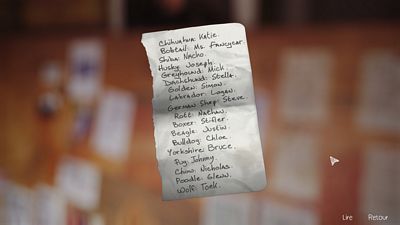 Chihuahua: Katie.
Bobtail: Ms. Fancyear.
Shiba: Nacho.
Husky: Joseph.
Greyhound: Mich.
Dachshund: Stella.
Golden: Simon.
Labrador: Logan.
German Shep: Steve
Rott: Nathan.
Boxer: Stifler.
Beagle: Justin.
Bulldog: Chloe.
Yorkshire: Bruce.
Pug: Johnny.
Chino: Nicholas.
Poodle: Glenn.
Wolf: Toek.
Lire
Retour